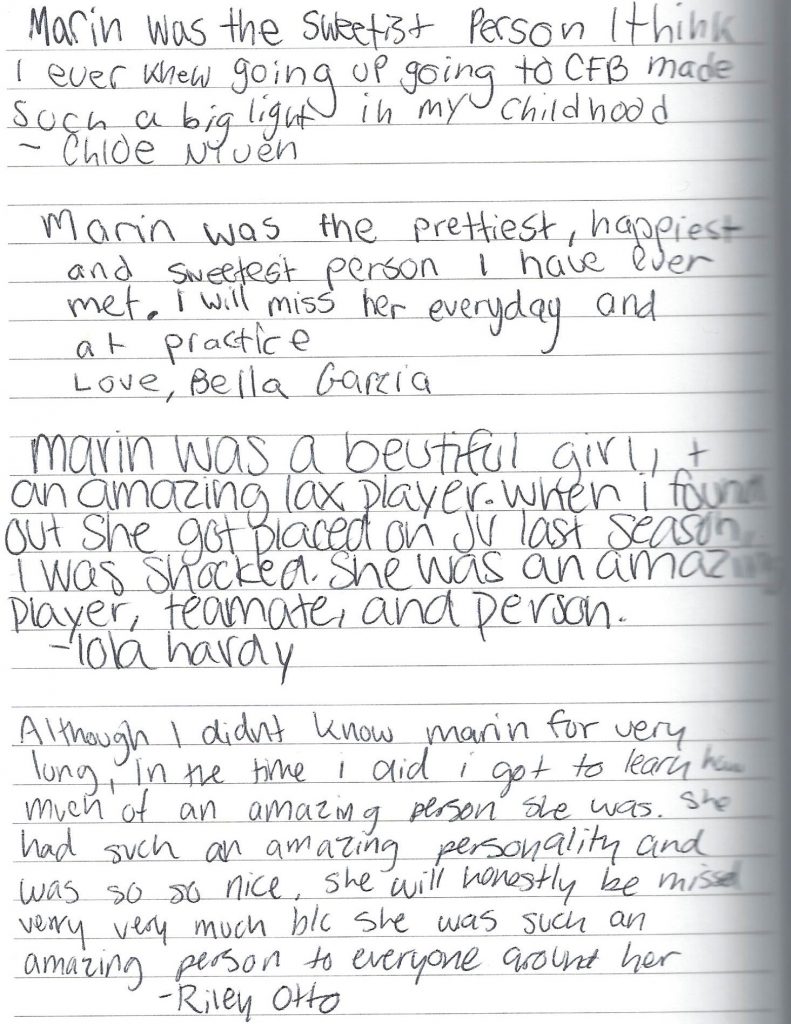 Marin was the sweetist person I think
I ever knew going up going to CFB made
such a big light in my childhood
~ Chloe Nyuen
Marin was the prettiest, happiest
and sweetest person I have ever
met. I will miss her everyday and
at practice
Love, Bella Garcia
Marin was a beutiful girl, +
an amazing lax player. When i found
out she got placed on JV last season,
I was shocked. She was an amazing
player, teamate, and person.
-lola hardy
Although I didnt know marin for very
long, in the time i did i got to learn how
much of an amazing person she was. She
had such an amazing personality and
was so so nice. She will honestly be missed
verry very much b/c she was such an
amazing person to everyone around her
-Riley Otto